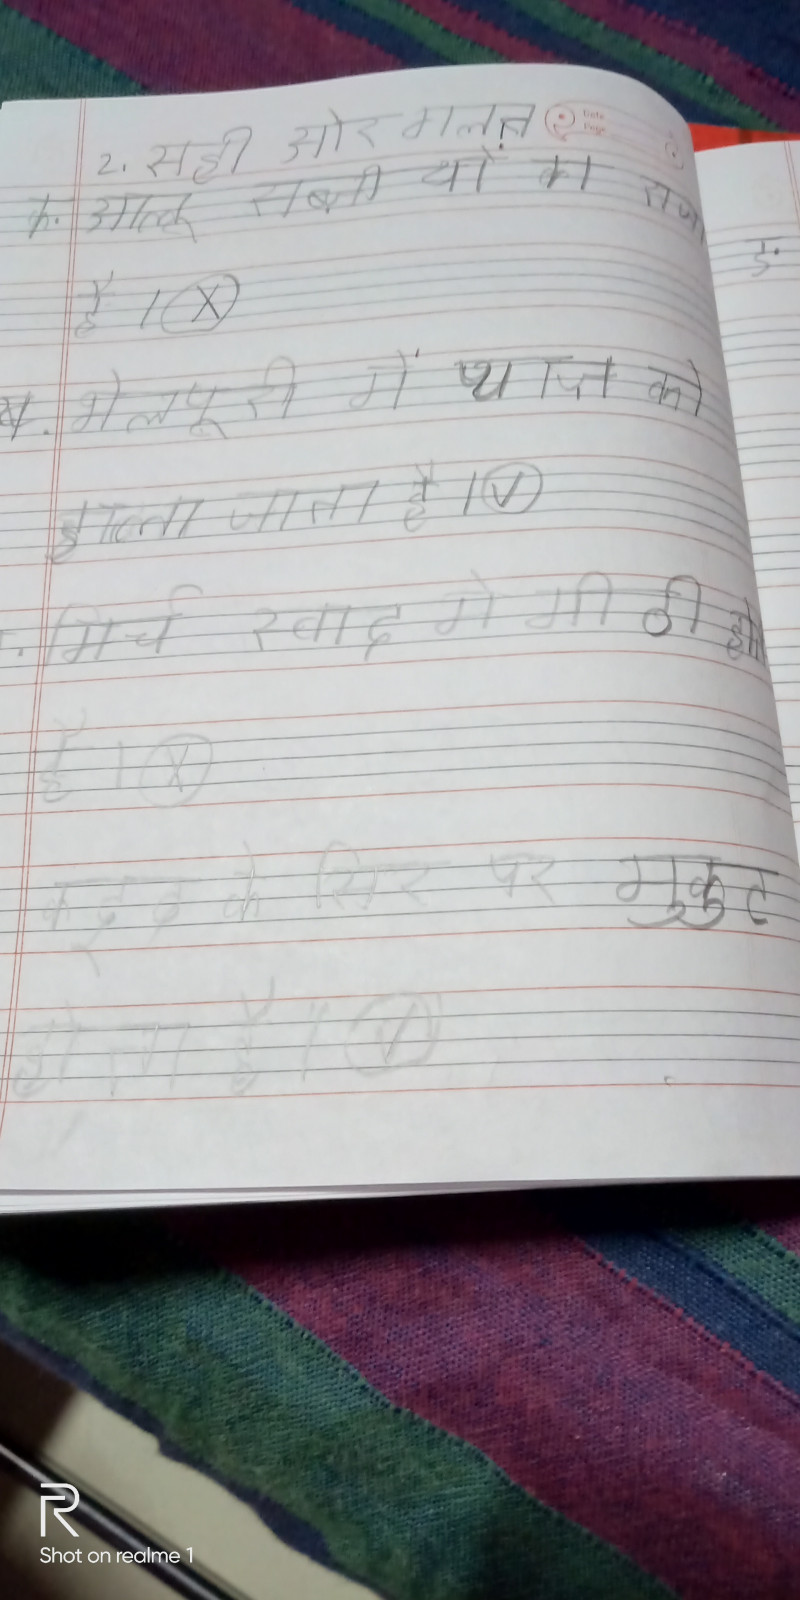 2. सही ओर गलत
Date
Page
क. आलू सब्जी यों का राजा
है । (X)
ख. भेलपूरी में प्याज को
डाला जाता है । (✓)
मिर्च स्वाद मे मीठी
है । (X)
कद्दू के सिर पर मुकुट
होता है । (✓)
ङ.
R
Shot on realme 1